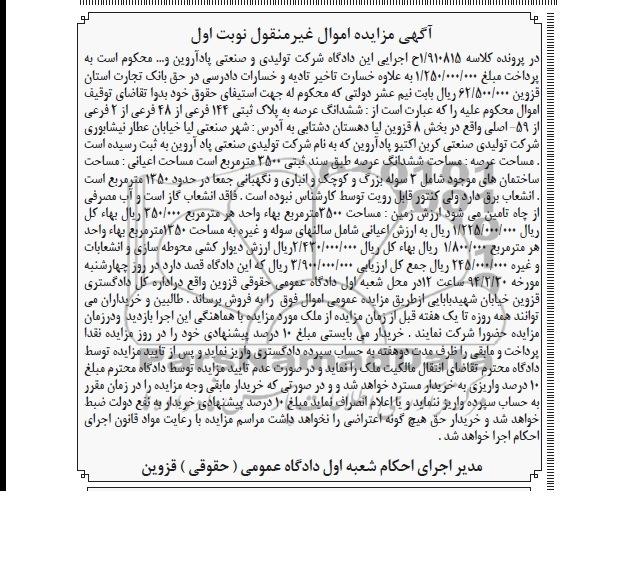 آگهی مزایده اموال غیرمنقول نوبت اول
در پرونده کلاسه ۱/۹۱۰۸۱۵ح اجرایی این دادگاه شرکت تولیدی و صنعتی پادآروین و... محکوم است به
پرداخت مبلغ ۱/۲۵۰/۰۰۰/۰۰۰ به علاوه خسارت تاخیر تادیه و خسارات دادرسی در حق بانک تجارت استان
قزوین ۶۲/۵۰۰/۰۰۰ ریال بابت نیم عشر دولتی که محکوم له جهت استیفای حقوق خود بدوا تقاضای توقیف
اموال محکوم علیه را که عبارت است از : ششدانگ عرصه به پلاک ثبتی ۱۴۴ فرعی از ۴۸ فرعی از ۲ فرعی
از ۵۹- اصلی واقع در بخش ۸ قزوین لیا دهستان دشتابی به آدرس : شهر صنعتی لیا خیابان عطار نیشابوری
شرکت تولیدی صنعتی کربن اکتیو پادآروین که به نام شرکت تولیدی صنعتی پاد آروین به ثبت رسیده است
. مساحت عرصه : مساحت ششدانگ عرصه طبق سند ثبتی ۳۵۰۰ مترمربع است مساحت اعیانی : مساحت
ساختمان های موجود شامل ۲ سوله بزرگ و کوچک و انباری و نگهبانی جمعا در حدود ۱۳۵۰ مترمربع است
. انشعاب برق دارد ولی کنتور قابل رویت توسط کارشناس نبوده است . فاقد انشعاب گاز است و آب مصرفی
از چاه تامین می شود ارزش زمین : مساحت ۳۵۰۰مترمربع بهاء واحد هر مترمربع ۳۵۰/۰۰۰ ریال بهاء کل
۱/۲۲۵/۰۰۰/۰۰۰ ریال به ارزش اعیانی شامل سالنهای سوله و غیره به مساحت ۱۳۵۰مترمربع بهاء واحد
هر مترمربع ۱/۸۰۰/۰۰۰ ریال بهاء کل ریال ۲/۴۳۰/۰۰۰/۰۰۰ریال ارزش دیوار کشی محوطه سازی و انشعابات
و غیره ۲۴۵/۰۰۰/۰۰۰ ریال جمع کل ارزیابی ۳/۹۰۰/۰۰۰/۰۰۰ ریال که این دادگاه قصد دارد در روز چهارشنبه
مورخه ۹۴/۲/۳۰ ساعت ۱۲در محل شعبه اول دادگاه عمومی حقوقی قزوین واقع دراداره کل دادگستری
قزوین خیابان شهیدبابایی ازطریق مزایده عمومی اموال فوق را به فروش برساند . طالبین و خریداران می
توانند همه روزه تا یک هفته قبل از زمان مزایده از ملک مورد مزایده با هماهنگی این اجرا بازدید ودرزمان
مزایده حضورا شرکت نمایند . خریدار می بایستی مبلغ ۱۰ درصد پیشنهادی خود را در روز مزایده نقدا
پرداخت و مابقی را ظرف مدت دوهفته به حساب سپرده دادگستری واریز نماید و پس از تایید مزایده توسط
دادگاه محترم تقاضای انتقال مالکیت ملک را نماید و در صورت عدم تایید مزایده توسط دادگاه محترم مبلغ
۱۰ درصد واریزی به خریدار مسترد خواهد شد و و در صورتی که خریدار مابقی وجه مزایده را در زمان مقرر
به حساب سپرده واریز ننماید و یا اعلام انصراف نماید مبلغ ۱۰ درصد پیشنهادی خریدار به نفع دولت ضبط
خواهد شد و خریدار حق هیچ گونه اعتراضی را نخواهد داشت مراسم مزایده با رعایت مواد قانون اجرای
احکام اجرا خواهد شد .
مدیر اجرای احکام شعبه اول دادگاه عمومی ( حقوقی ) قزوین